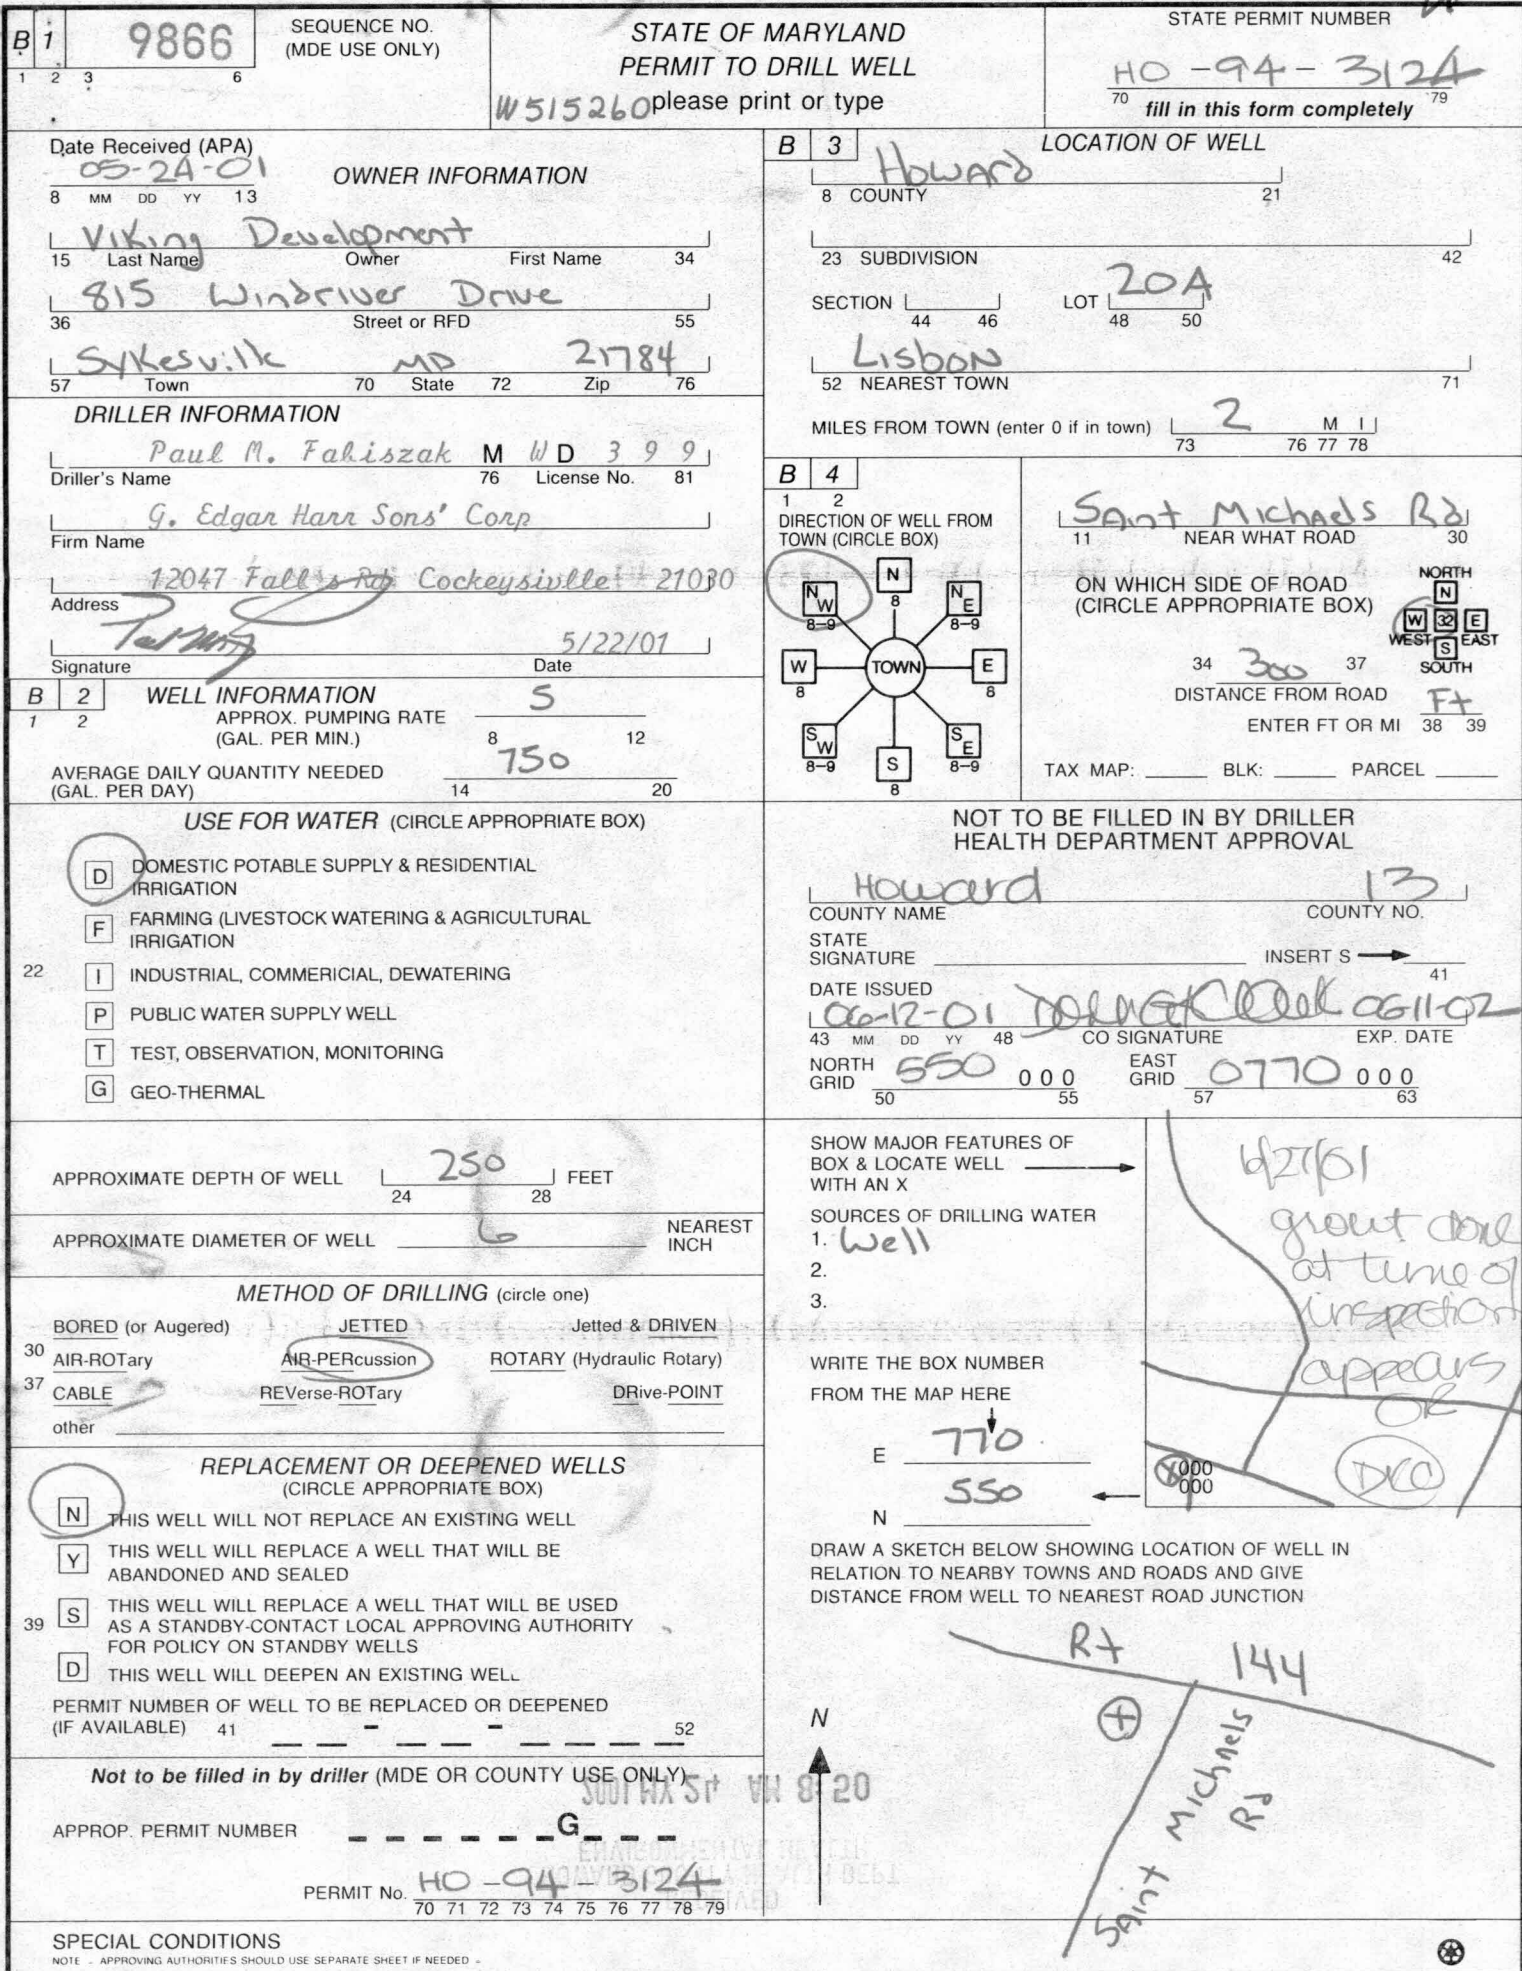 B 1 9866 SEQUENCE NO.
(MDE USE ONLY)
1 2 3 6
STATE OF MARYLAND
PERMIT TO DRILL WELL
W515260 please print or type
STATE PERMIT NUMBER
HO - 94 - 3124
70 79
fill in this form completely
Date Received (APA)
05-24-01
8 MM DD YY 13
OWNER INFORMATION
Viking Development
15 Last Name Owner First Name 34
815 Windriver Drive
36 Street or RFD 55
Sykesville MD 21784
57 Town 70 State 72 Zip 76
DRILLER INFORMATION
Paul M. Fabiszak M W D 3 9 9
Driller's Name 76 License No. 81
G. Edgar Harr Sons' Corp
Firm Name
12047 Fall's Rd. Cockeysivlle 21030
Address
5/22/01
Signature Date
B 2 WELL INFORMATION
1 2
APPROX. PUMPING RATE 5
(GAL. PER MIN.) 8 12
AVERAGE DAILY QUANTITY NEEDED 750
(GAL. PER DAY) 14 20
USE FOR WATER (CIRCLE APPROPRIATE BOX)
D DOMESTIC POTABLE SUPPLY & RESIDENTIAL
IRRIGATION
F FARMING (LIVESTOCK WATERING & AGRICULTURAL
IRRIGATION
22 I INDUSTRIAL, COMMERICIAL, DEWATERING
P PUBLIC WATER SUPPLY WELL
T TEST, OBSERVATION, MONITORING
G GEO-THERMAL
APPROXIMATE DEPTH OF WELL 250 FEET
24 28
APPROXIMATE DIAMETER OF WELL 6 NEAREST
INCH
METHOD OF DRILLING (circle one)
BORED (or Augered) JETTED Jetted & DRIVEN
30 AIR-ROTary AIR-PERcussion ROTARY (Hydraulic Rotary)
37 CABLE REVerse-ROTary DRive-POINT
other
REPLACEMENT OR DEEPENED WELLS
(CIRCLE APPROPRIATE BOX)
N THIS WELL WILL NOT REPLACE AN EXISTING WELL
Y THIS WELL WILL REPLACE A WELL THAT WILL BE
ABANDONED AND SEALED
39 S THIS WELL WILL REPLACE A WELL THAT WILL BE USED
AS A STANDBY-CONTACT LOCAL APPROVING AUTHORITY
FOR POLICY ON STANDBY WELLS
D THIS WELL WILL DEEPEN AN EXISTING WELL
PERMIT NUMBER OF WELL TO BE REPLACED OR DEEPENED
(IF AVAILABLE) 41 - - 52
Not to be filled in by driller (MDE OR COUNTY USE ONLY)
2001 MY 24 AM 8 50
APPROP. PERMIT NUMBER G
PERMIT No. HO - 94 - 3124
70 71 72 73 74 75 76 77 78 79
SPECIAL CONDITIONS
NOTE - APPROVING AUTHORITIES SHOULD USE SEPARATE SHEET IF NEEDED -
B 3 LOCATION OF WELL
Howard
8 COUNTY 21
23 SUBDIVISION 42
SECTION LOT 20A
44 46 48 50
Lisbon
52 NEAREST TOWN 71
MILES FROM TOWN (enter 0 if in town) 2 M I
73 76 77 78
B 4
1 2
DIRECTION OF WELL FROM
TOWN (CIRCLE BOX)
N
8
N W
8-9
N E
8-9
W
8
TOWN
E
8
S W
8-9
S
8
S E
8-9
Saint Michaels Rd
11 NEAR WHAT ROAD 30
ON WHICH SIDE OF ROAD
(CIRCLE APPROPRIATE BOX)
NORTH
N
W 32 E
WEST EAST
S
SOUTH
34 300 37
DISTANCE FROM ROAD
Ft
ENTER FT OR MI 38 39
TAX MAP: BLK: PARCEL
NOT TO BE FILLED IN BY DRILLER
HEALTH DEPARTMENT APPROVAL
Howard 13
COUNTY NAME COUNTY NO.
STATE
SIGNATURE INSERT S
41
DATE ISSUED
06-12-01 06-11-02
43 MM DD YY 48 CO SIGNATURE EXP. DATE
NORTH
GRID 550 0 0 0
50 55
EAST
GRID 0770 0 0 0
57 63
SHOW MAJOR FEATURES OF
BOX & LOCATE WELL
WITH AN X
SOURCES OF DRILLING WATER
1. Well
2.
3.
WRITE THE BOX NUMBER
FROM THE MAP HERE
E 770
N 550
6/27/01
grout done
at time of
inspection
appears
OK
DKC
X 000
000
DRAW A SKETCH BELOW SHOWING LOCATION OF WELL IN
RELATION TO NEARBY TOWNS AND ROADS AND GIVE
DISTANCE FROM WELL TO NEAREST ROAD JUNCTION
Rt 144
N
Saint Michaels Rd